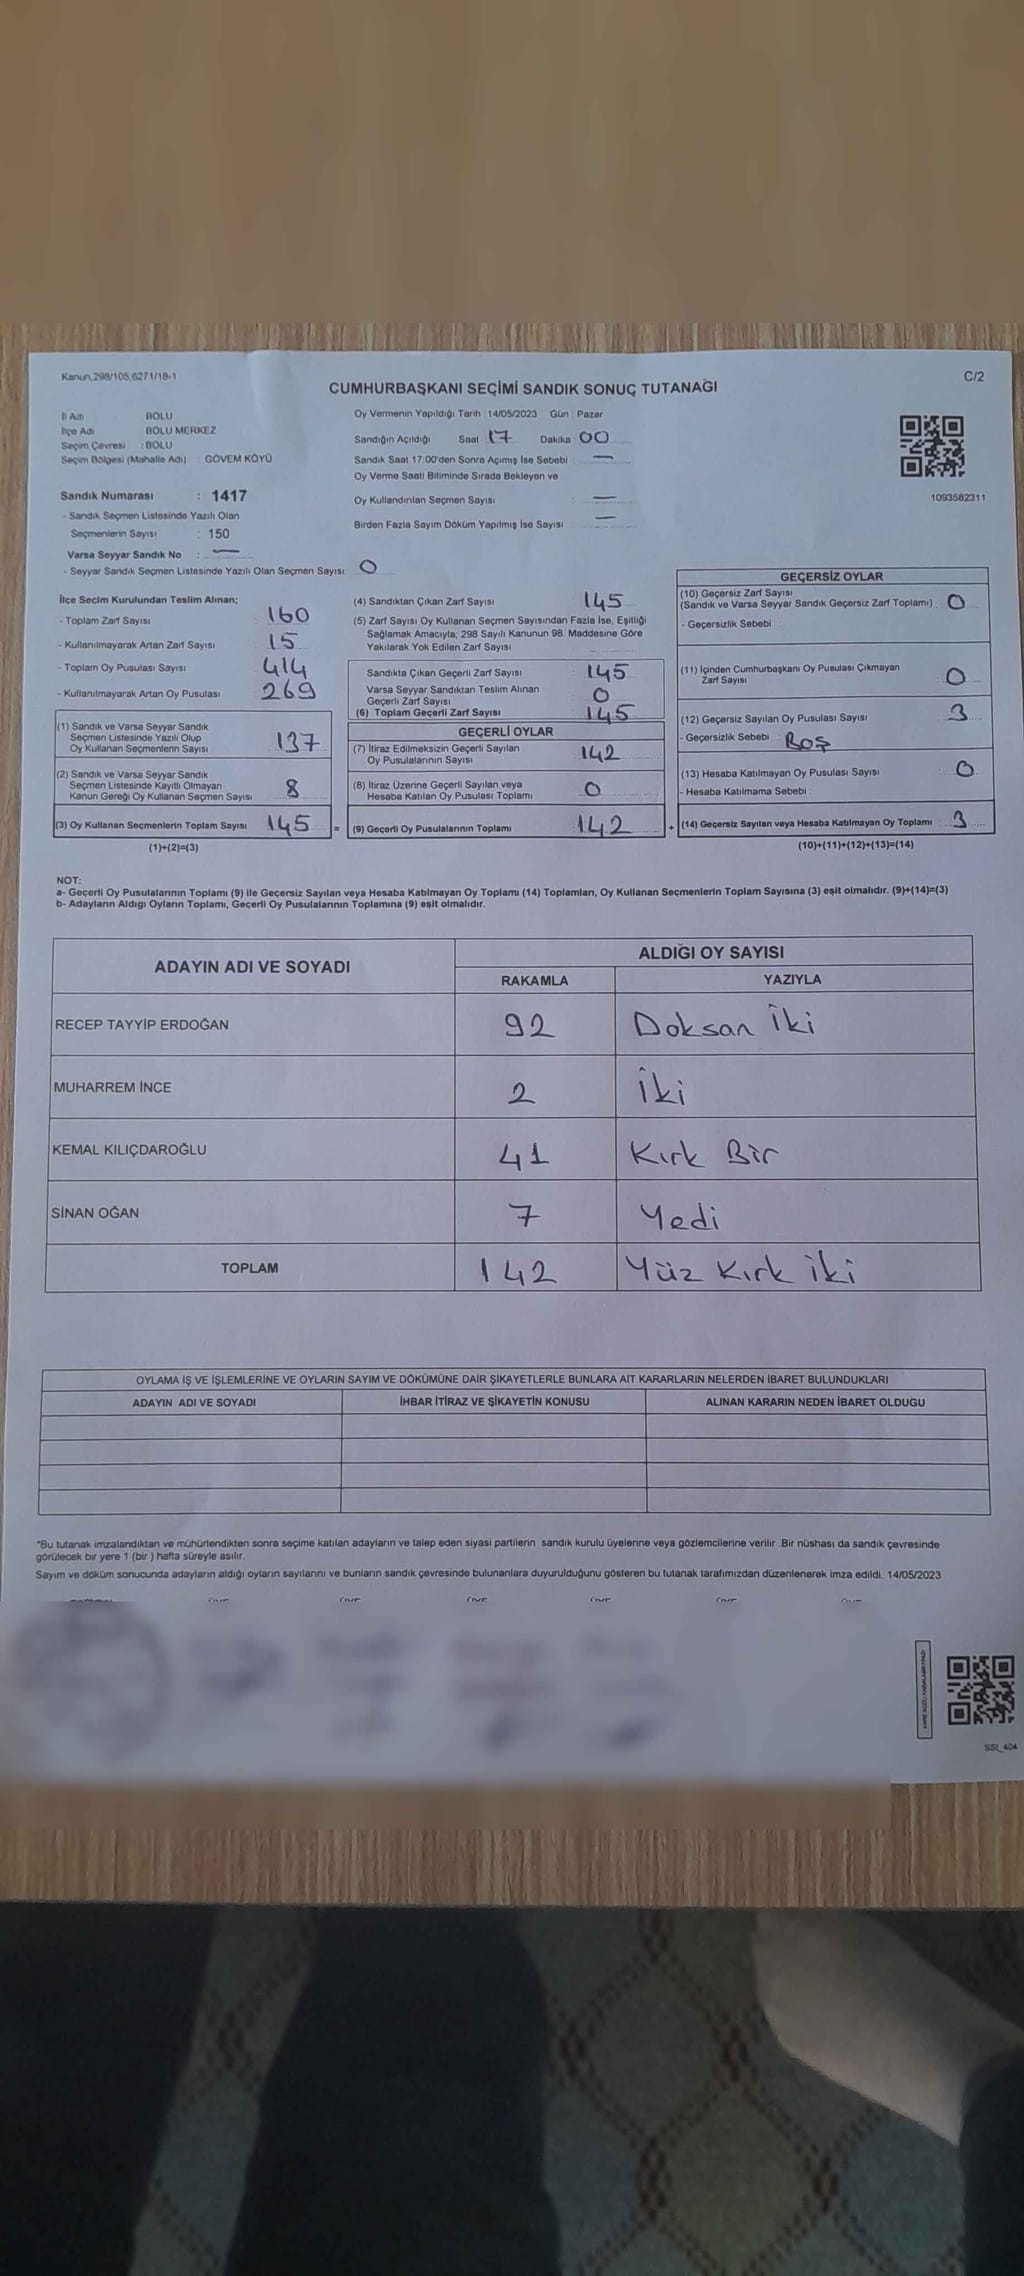 Kanun.298/105,6271/18-1
C/2
CUMHURBAŞKANI SEÇİMİ SANDIK SONUÇ TUTANAĞI
İl Adı BOLU
İlçe Adı BOLU MERKEZ
Seçim Çevresi : BOLU
Seçim Bölgesi (Mahalle Adı) : GÖVEM KÖYÜ
Sandık Numarası : 1417
- Sandık Seçmen Listesinde Yazılı Olan
Seçmenlerin Sayısı : 150
Varsa Seyyar Sandık No : —
- Seyyar Sandık Seçmen Listesinde Yazılı Olan Seçmen Sayısı: 0
Oy Vermenin Yapıldığı Tarih : 14/05/2023 Gün : Pazar
Sandığın Açıldığı Saat 17 Dakika 00
Sandık Saat 17:00'den Sonra Açımış İse Sebebi : —
Oy Verme Saati Bitiminde Sırada Bekleyen ve
Oy Kullandırılan Seçmen Sayısı : —
Birden Fazla Sayım Döküm Yapılmış İse Sayısı : —
1093582311
İlçe Seçim Kurulundan Teslim Alınan;
- Toplam Zarf Sayısı : 160
- Kullanılmayarak Artan Zarf Sayısı : 15
- Toplam Oy Pusulası Sayısı : 414
- Kullanılmayarak Artan Oy Pusulası : 269
(1) Sandık ve Varsa Seyyar Sandık
Seçmen Listesinde Yazılı Olup
Oy Kullanan Seçmenlerin Sayısı : 137
(2) Sandık ve Varsa Seyyar Sandık
Seçmen Listesinde Kayıtlı Olmayan
Kanun Gereği Oy Kullanan Seçmen Sayısı 8
(3) Oy Kullanan Seçmenlerin Toplam Sayısı 145 =
(1)+(2)=(3)
(4) Sandıktan Çıkan Zarf Sayısı : 145
(5) Zarf Sayısı Oy Kullanan Seçmen Sayısından Fazla İse, Eşitliği
Sağlamak Amacıyla; 298 Sayılı Kanunun 98. Maddesine Göre
Yakılarak Yok Edilen Zarf Sayısı :
Sandıkta Çıkan Geçerli Zarf Sayısı : 145
Varsa Seyyar Sandıktan Teslim Alınan
Geçerli Zarf Sayısı : 0
(6) Toplam Geçerli Zarf Sayısı : 145
GEÇERLİ OYLAR
(7) İtiraz Edilmeksizin Geçerli Sayılan
Oy Pusulalarının Sayısı : 142
(8) İtiraz Üzerine Geçerli Sayılan veya
Hesaba Katılan Oy Pusulası Toplamı : 0
(9) Geçerli Oy Pusulalarının Toplamı : 142 +
GEÇERSİZ OYLAR
(10) Geçersiz Zarf Sayısı
(Sandık ve Varsa Seyyar Sandık Geçersiz Zarf Toplamı) : 0
- Geçersizlik Sebebi :
(11) İçinden Cumhurbaşkanı Oy Pusulası Çıkmayan
Zarf Sayısı : 0
(12) Geçersiz Sayılan Oy Pusulası Sayısı : 3
- Geçersizlik Sebebi : BOŞ
(13) Hesaba Katılmayan Oy Pusulası Sayısı : 0
- Hesaba Katılmama Sebebi :
(14) Geçersiz Sayılan veya Hesaba Katılmayan Oy Toplamı : 3
(10)+(11)+(12)+(13)=(14)
NOT:
a- Geçerli Oy Pusulalarının Toplamı (9) ile Geçersiz Sayılan veya Hesaba Katılmayan Oy Toplamı (14) Toplamları, Oy Kullanan Seçmenlerin Toplam Sayısına (3) eşit olmalıdır. (9)+(14)=(3)
b- Adayların Aldığı Oyların Toplamı, Geçerli Oy Pusulalarının Toplamına (9) eşit olmalıdır.
ADAYIN ADI VE SOYADI ALDIĞI OY SAYISI
RAKAMLA YAZIYLA
RECEP TAYYİP ERDOĞAN 92 Doksan İki
MUHARREM İNCE 2 İki
KEMAL KILIÇDAROĞLU 41 Kırk Bir
SİNAN OĞAN 7 Yedi
TOPLAM 142 Yüz Kırk İki
OYLAMA İŞ VE İŞLEMLERİNE VE OYLARIN SAYIM VE DÖKÜMÜNE DAİR ŞİKAYETLERLE BUNLARA AİT KARARLARIN NELERDEN İBARET BULUNDUKLARI
ADAYIN ADI VE SOYADI İHBAR İTİRAZ VE ŞİKAYETİN KONUSU ALINAN KARARIN NEDEN İBARET OLDUĞU
*Bu tutanak imzalandıktan ve mühürlendikten sonra seçime katılan adayların ve talep eden siyasi partilerin sandık kurulu üyelerine veya gözlemcilerine verilir. Bir nüshası da sandık çevresinde
görülecek bir yere 1 (bir ) hafta süreyle asılır.
Sayım ve döküm sonucunda adayların aldığı oyların sayılarını ve bunların sandık çevresinde bulunanlara duyurulduğunu gösteren bu tutanak tarafımızdan düzenlenerek imza edildi. 14/05/2023
SSI_404